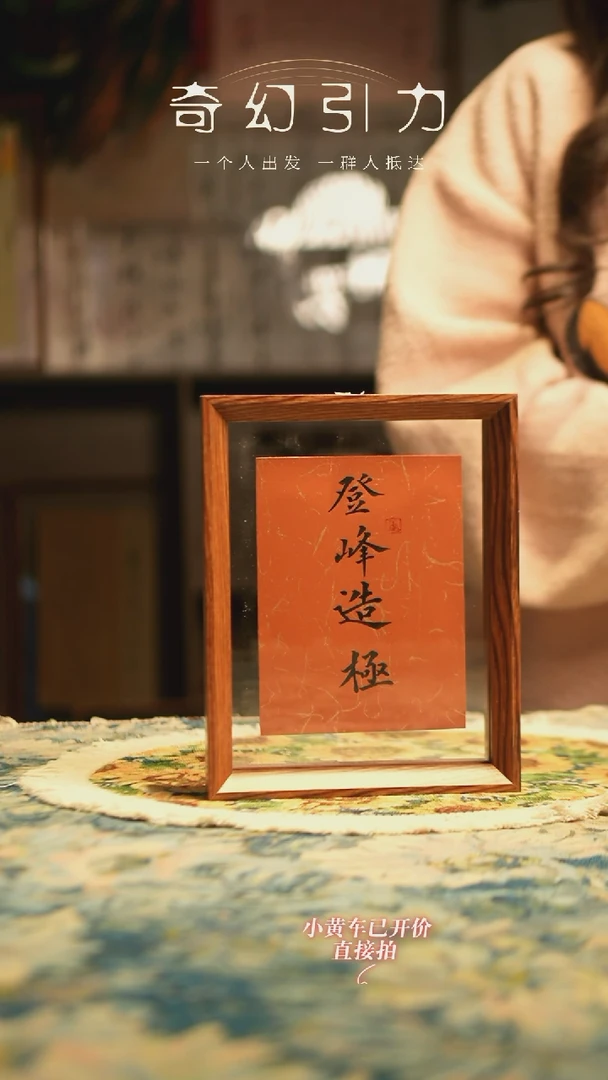 奇幻引力
一个人出发 一群人抵达
登峰造極
小黄车已开价
直接拍